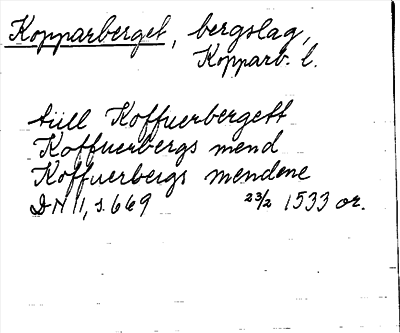 Kopparberget, bergslag,
Kopparb. l.
tüll Koffuerbergett
Koffuerbergs mend
Koffuerbergs mendene
DN 11, s. 669 23/2 1533 or.